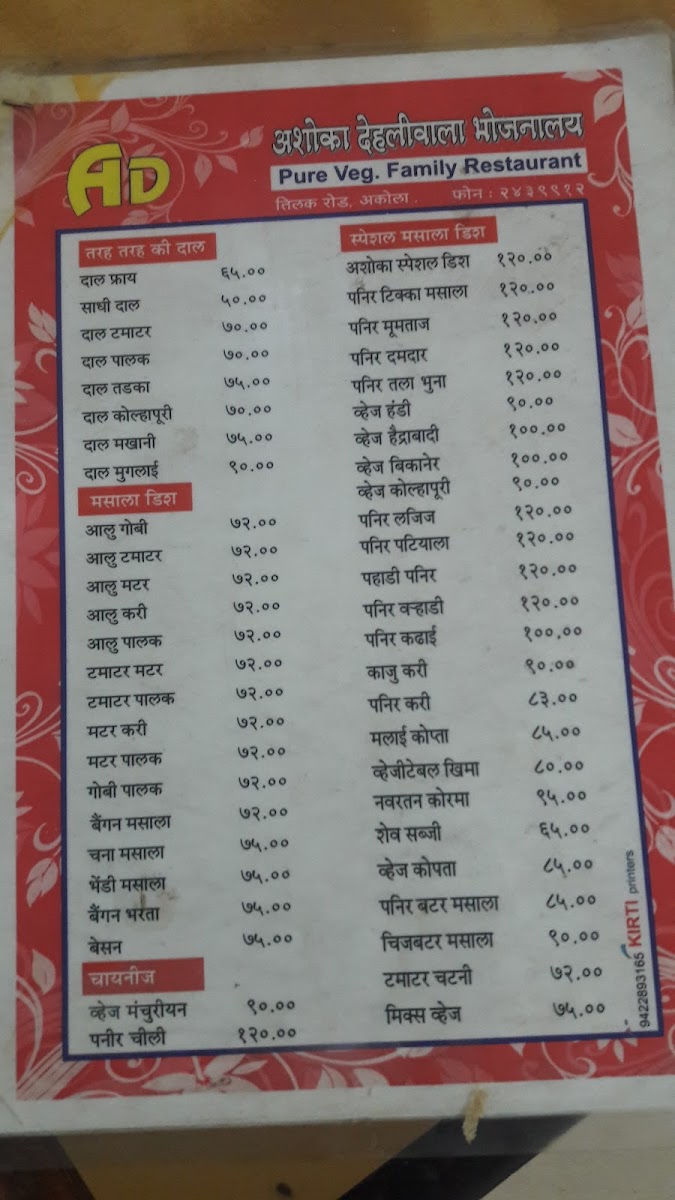 AD
अशोका देहलीवाला भोजनालय
Pure Veg. Family Restaurant
तिलक रोड, अकोला. फोन : २४३९९१२
तरह तरह की दाल
दाल फ्राय ६५.००
साधी दाल ५०.००
दाल टमाटर ७०.००
दाल पालक ७०.००
दाल तडका ७५.००
दाल कोल्हापूरी ७०.००
दाल मखानी ७५.००
दाल मुगलाई ९०.००
मसाला डिश
आलु गोबी ७२.००
आलु टमाटर ७२.००
आलु मटर ७२.००
आलु करी ७२.००
आलु पालक ७२.००
टमाटर मटर ७२.००
टमाटर पालक ७२.००
मटर करी ७२.००
मटर पालक ७२.००
गोबी पालक ७२.००
बैंगन मसाला ७२.००
चना मसाला ७५.००
भेंडी मसाला ७५.००
बैंगन भरता ७५.००
बेसन ७५.००
चायनीज
व्हेज मंचुरीयन ९०.००
पनीर चीली १२०.००
स्पेशल मसाला डिश
अशोका स्पेशल डिश १२०.००
पनिर टिक्का मसाला १२०.००
पनिर मूमताज १२०.००
पनिर दमदार १२०.००
पनिर तला भुना १२०.००
व्हेज हंडी ९०.००
व्हेज हैद्राबादी १००.००
व्हेज बिकानेर १००.००
व्हेज कोल्हापूरी ९०.००
पनिर लजिज १२०.००
पनिर पटियाला १२०.००
पहाडी पनिर १२०.००
पनिर वऱ्हाडी १२०.००
पनिर कढाई १००.००
काजु करी ९०.००
पनिर करी ८३.००
मलाई कोप्ता ८५.००
व्हेजीटेबल खिमा ८०.००
नवरतन कोरमा ९५.००
शेव सब्जी ६५.००
व्हेज कोपता ८५.००
पनिर बटर मसाला ८५.००
चिजबटर मसाला ९०.००
टमाटर चटनी ७२.००
मिक्स व्हेज ७५.००
9422893165 KIRTI printers